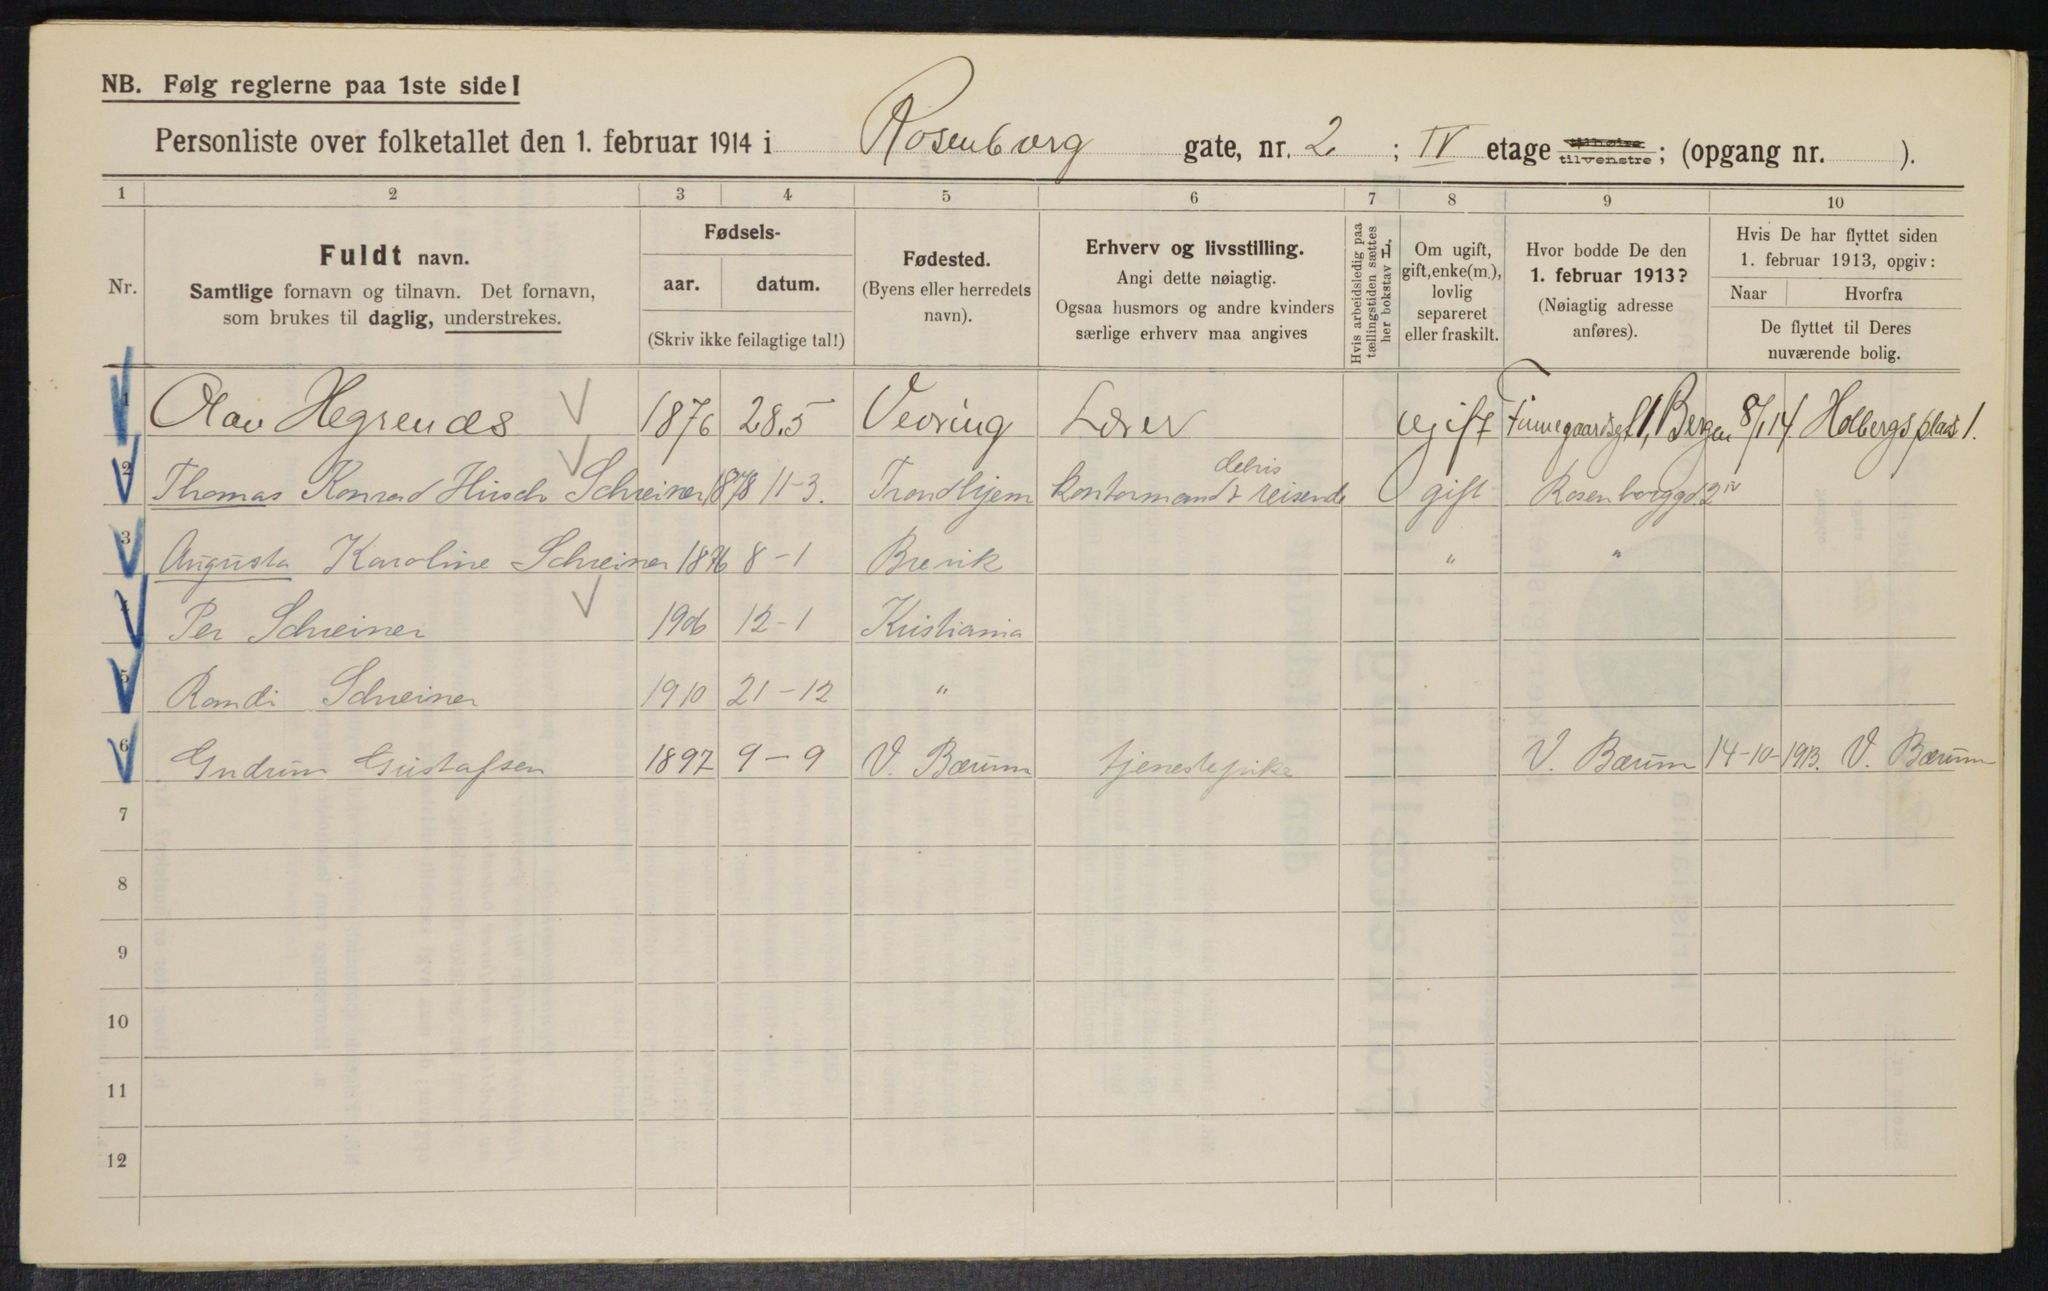 NB. Følg reglerne paa 1ste side!
Personliste over folketallet den 1. februar 1914 i Rosenborg gate, nr. 2 ; IV etage tilhøire tilvenstre; (opgang nr. ).
1 2 3 4 5 6 7 8 9 10
Nr.
Fuldt navn.
Samtlige fornavn og tilnavn. Det fornavn,
som brukes til daglig, understrekes.
Fødsels-
aar. datum.
(Skriv ikke feilagtige tal!)
Fødested.
(Byens eller herredets
navn).
Erhverv og livsstilling.
Angi dette nøiagtig.
Ogsaa husmors og andre kvinders
særlige erhverv maa angives
Hvis arbeidsledig paa
tællingstiden sættes
her bokstav H.
Om ugift,
gift, enke(m.),
lovlig
separeret
eller fraskilt.
Hvor bodde De den
1. februar 1913?
(Nøiagtig adresse
anføres).
Hvis De har flyttet siden
1. februar 1913, opgiv:
Naar Hvorfra
De flyttet til Deres
nuværende bolig.
1 Olav Hegrenæs 1876 28.5 Vevring Lærer ugift Finnegaardsgt 1, Bergen 8/1 14 Holbergs plads 1.
2 Thomas Konrad Hirsch Schreiner 1878 11-3. Trondhjem kontormand & delvis reisende gift Rosenborggd. 2 IV
3 Augusta Karoline Schreiner 1876 8-1 Brevik " "
4 Per Schreiner 1906 12-1 Kristiania
5 Randi Schreiner 1910 21-12 "
6 Gudrun Gustafsen 1897 9-9 V. Bærum tjenestepike V. Bærum 14-10-1913. V. Bærum
7
8
9
10
11
12